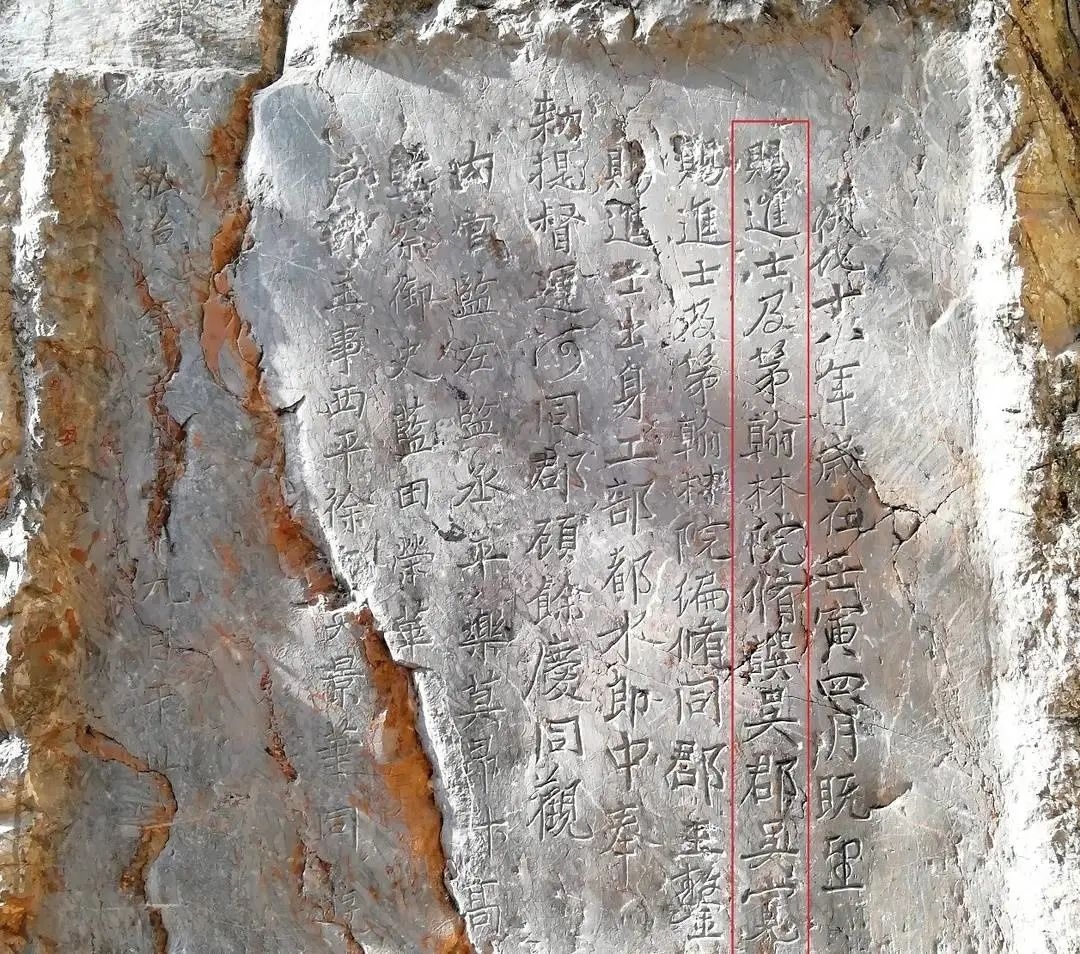 成化十八年歲在壬寅四月既望
賜進士及第翰林院脩撰吳郡吳寬
賜進士及第翰林院編脩同郡王鏊
賜進士出身工部都水郎中奉
勑提督運河同郡顧餘慶同觀
內官監左監丞平樂莫昂
監察御史藍田榮華
戶部主事西平徐 景華同游
弘治 年 九日